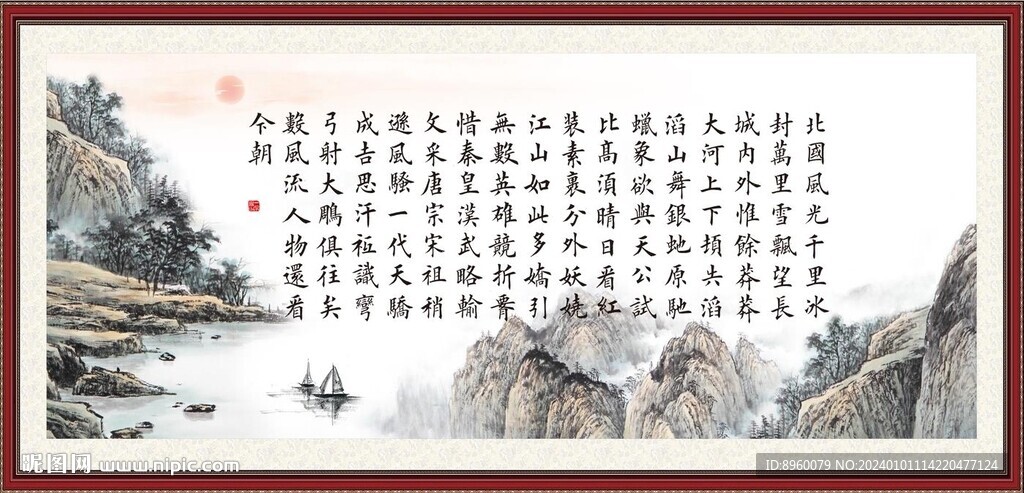 北國風光千里冰
封萬里雪飄望長
城內外惟餘莽莽
大河上下頓失滔
滔山舞銀虵原馳
蠟象欲與天公試
比髙須晴日看紅
裝素裹分外妖嬈
江山如此多嬌引
無數英雄競折腰
惜秦皇漢武略輸
文采唐宗宋祖稍
遜風騷一代天驕
成吉思汗衹識彎
弓射大鵰俱往矣
數風流人物還看
今朝
昵图网 www.nipic.com
ID:8960079 NO:20240101114220477124